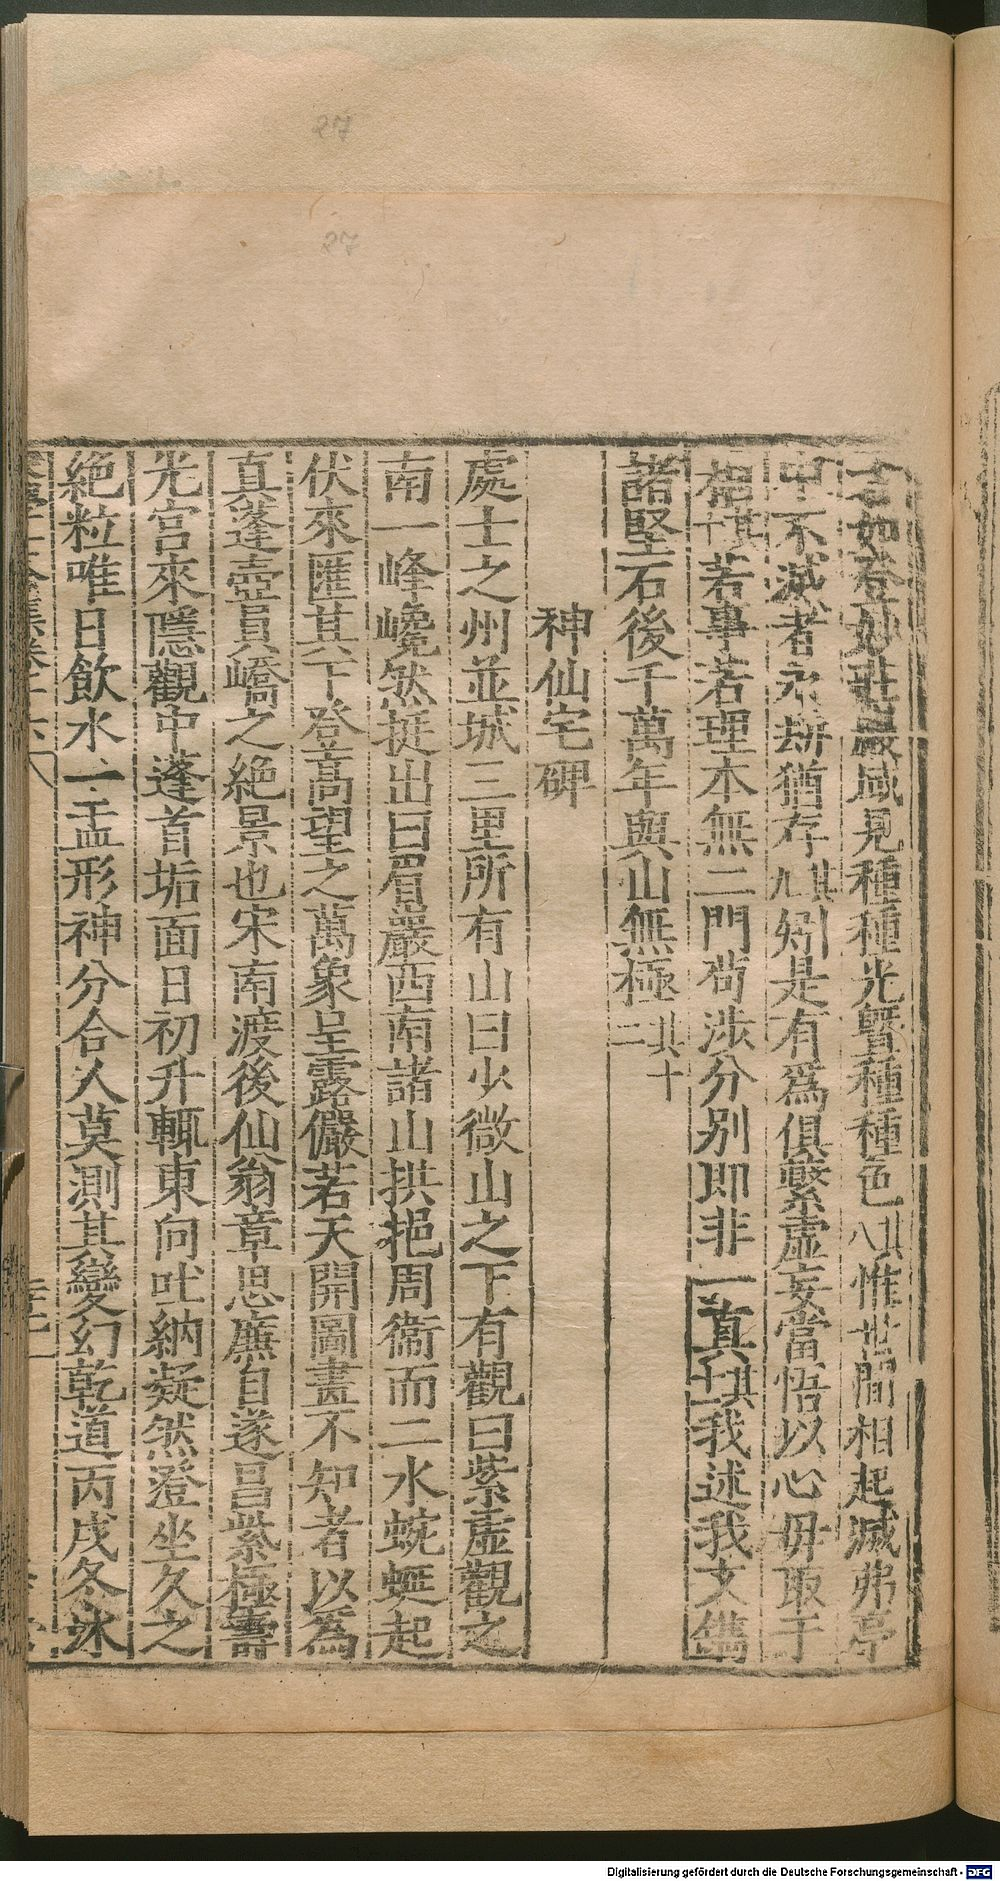 27
27
如登妙莊嚴域見種種光暨種種色其八惟世間相起滅弗亭
中不滅者永劫猶存其九矧是有爲俱繫虛妄當悟以心毋取于
相其十若事若理本無二門苟涉分別即非一真其十一我述我文鐫
諸堅石後千萬年與山無極其十二
神仙宅碑
處士之州並城三里所有山曰少微山之下有觀曰紫虛觀之
南一峰巉然挺出曰眉巖西南諸山拱挹周衞而二水蜿蜒起
伏來匯其下登高望之萬象呈露儼若天開圖畫不知者以為
真蓬壺員嶠之絶景也宋南渡後仙翁章思廉自遂昌紫極壽
光宮來隱觀中蓬首垢面日初升輒東向吐納凝然澄坐久之
絶粒唯日飲水一盂形神分合人莫測其變幻乾道丙戌冬沐
Digitalisierung gefördert durch die Deutsche Forschungsgemeinschaft - DFG